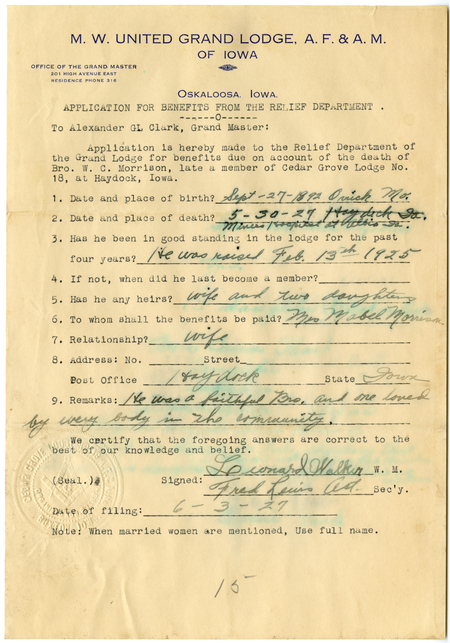 M. W. UNITED GRAND LODGE, A. F. & A. M.
OF IOWA
OFFICE OF THE GRAND MASTER
201 HIGH AVENUE EAST
RESIDENCE PHONE 316
OSKALOOSA, IOWA.
APPLICATION FOR BENEFITS FROM THE RELIEF DEPARTMENT .
------O------
To Alexander GL Clark, Grand Master:
Application is hereby made to the Relief Department of
the Grand Lodge for benefits due on account of the death of
Bro. W. C. Morrison, late a member of Cedar Grove Lodge No.
18, at Haydock, Iowa.
1. Date and place of birth? Sept-27-1892 Mo.
2. Date and place of death? 5-30-27 Haydock Ia.
Miners Hospital at Ia.
3. Has he been in good standing in the lodge for the past
four years? He was raised Feb. 13th 1925
4. If not, when did he last become a member?
5. Has he any heirs? wife and two daughters
6. To whom shall the benefits be paid? Mrs Mabel Morrison
7. Relationship? wife
8. Address: No. Street
Post Office Haydock State Iowa
9. Remarks: He was a faithful Bro. and one loved
by wery body in the community.
We certify that the foregoing answers are correct to the
best of our knowledge and belief.
(Seal.) Signed: Leonard Walker W. M.
Fred Lewis Act. Sec'y.
Date of filing: 6-3-27
Note: When married women are mentioned, Use full name.
15